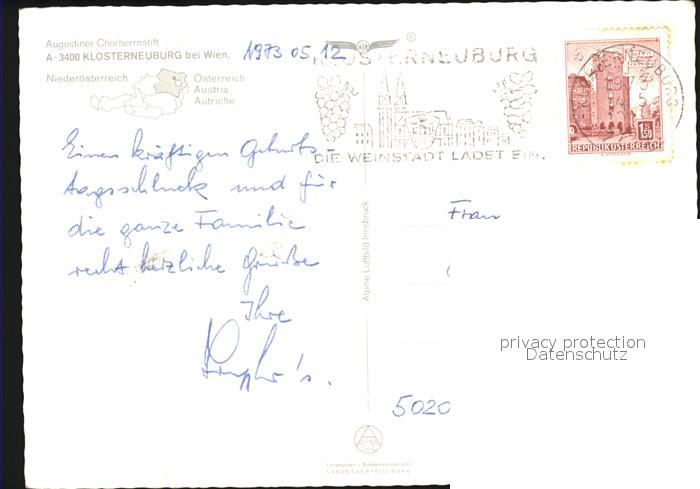 Augustiner Chorherrnstift
A-3400 KLOSTERNEUBURG bei Wien.
1973 05. 12
Niederösterreich
Österreich
Austria
Autriche
KLOSTERNEUBURG
DIE WEINSTADT LADET EIN.
KLOSTERNEUBURG
1.50
REPUBLIK ÖSTERREICH
Einen kräftigen Geburts-
tagsschluck und für
die ganze Familie
recht herzliche Grüße
Ihre
Alpine Luftbild Innsbruck
Frau
5020
privacy protection
Datenschutz
Freigegeben v. Bundesminister. f.
LANDESVERTEIDIGUNG